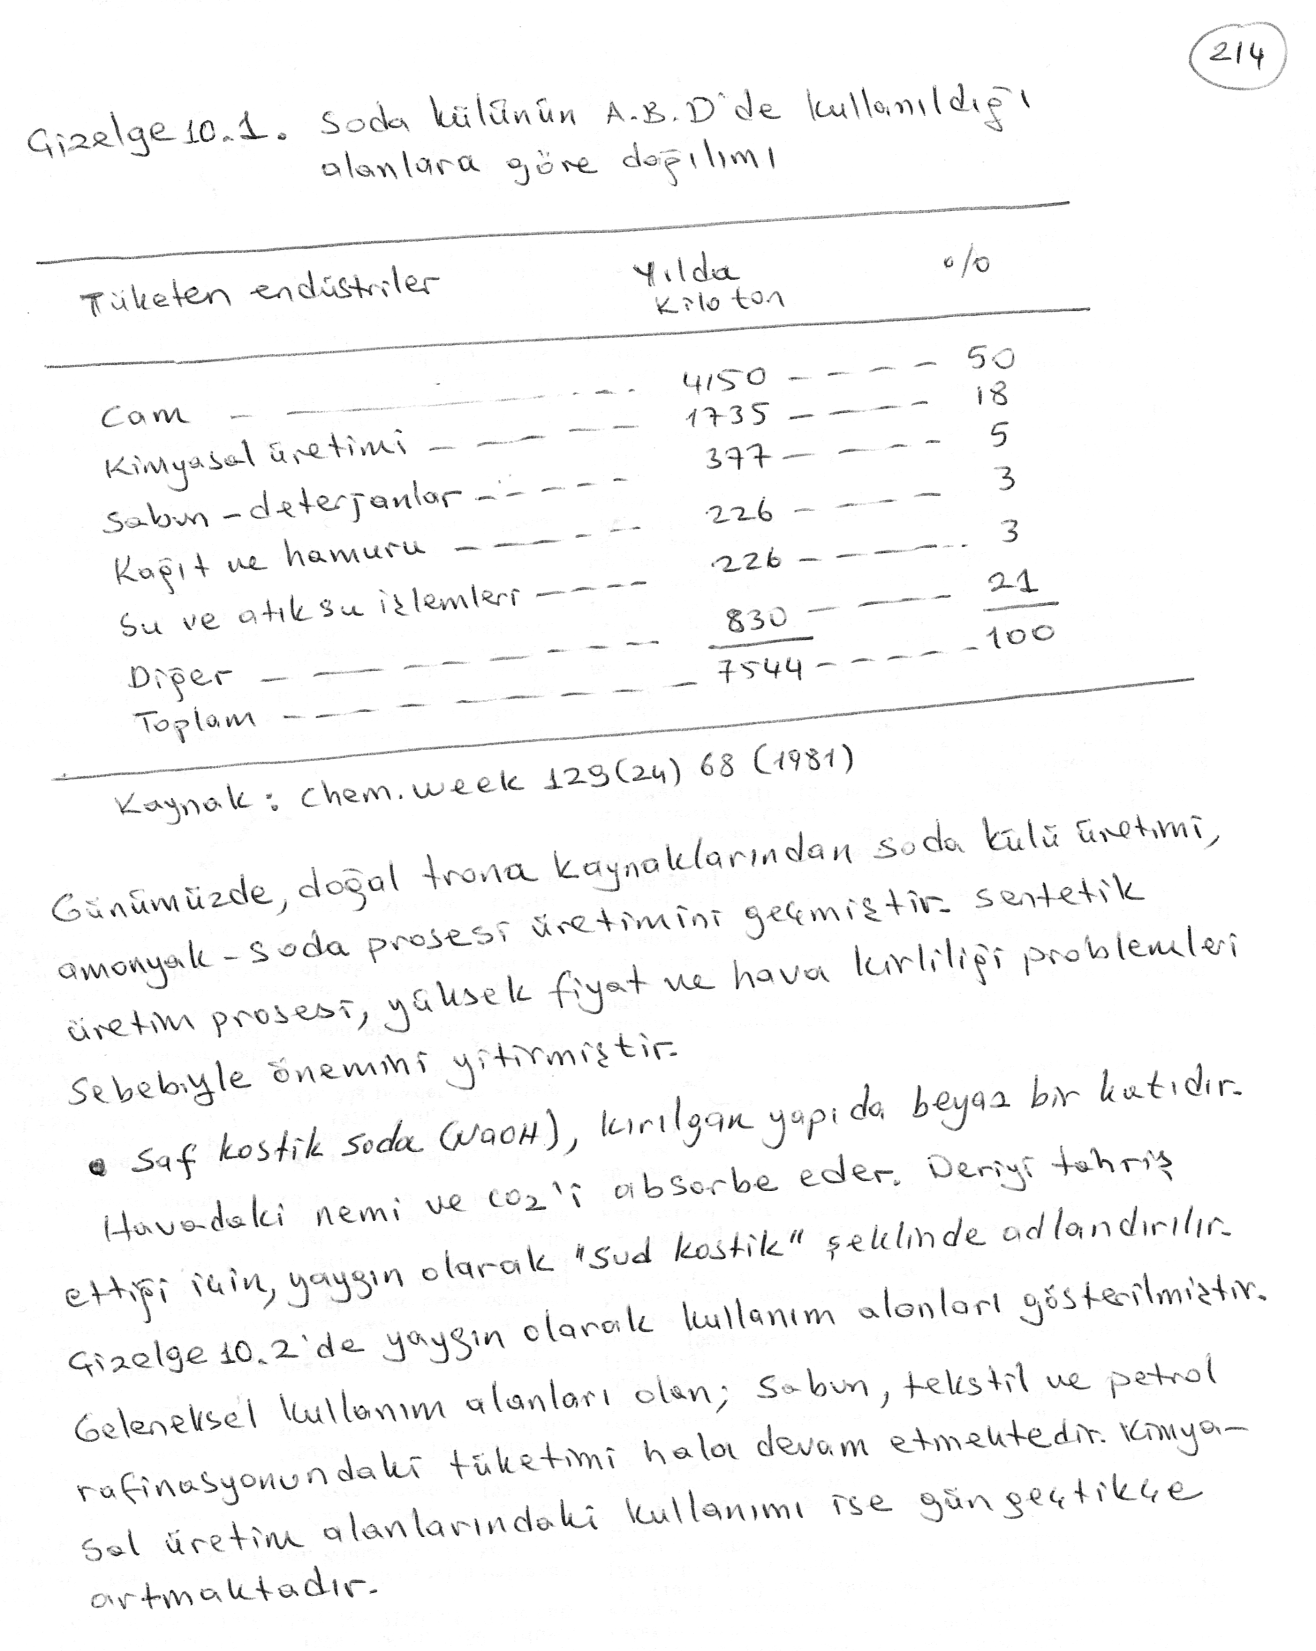 214
Çizelge 10.1. Soda külünün A.B.D'de kullanıldığı
alanlara göre dağılımı
Tüketen endüstriler Yılda %
Kilo ton
Cam 4150 50
Kimyasal üretimi 1735 18
Sabun-deterjanlar 377 5
Kağıt ve hamuru 226 3
Su ve atık su işlemleri 226 3
Diğer 830 21
Toplam 7544 100
Kaynak: Chem. week 129(24) 68 (1981)
Günümüzde, doğal trona kaynaklarından soda külü üretimi,
amonyak-soda prosesi üretimini geçmiştir. Sentetik
üretim prosesi, yüksek fiyat ve hava kirliliği problemleri
Sebebiyle önemini yitirmiştir.
• Saf kostik soda (NaOH), kırılgan yapıda beyaz bir katıdır.
Havadaki nemi ve CO2'i absorbe eder. Deriyi tahriş
ettiği için, yaygın olarak "Sud kostik" şeklinde adlandırılır.
Çizelge 10.2'de yaygın olarak kullanım alanları gösterilmiştir.
Geleneksel kullanım alanları olan; Sabun, tekstil ve petrol
rafinasyonundaki tüketimi hala devam etmektedir. Kimya-
sal üretim alanlarındaki kullanımı ise gün geçtikçe
artmaktadır.